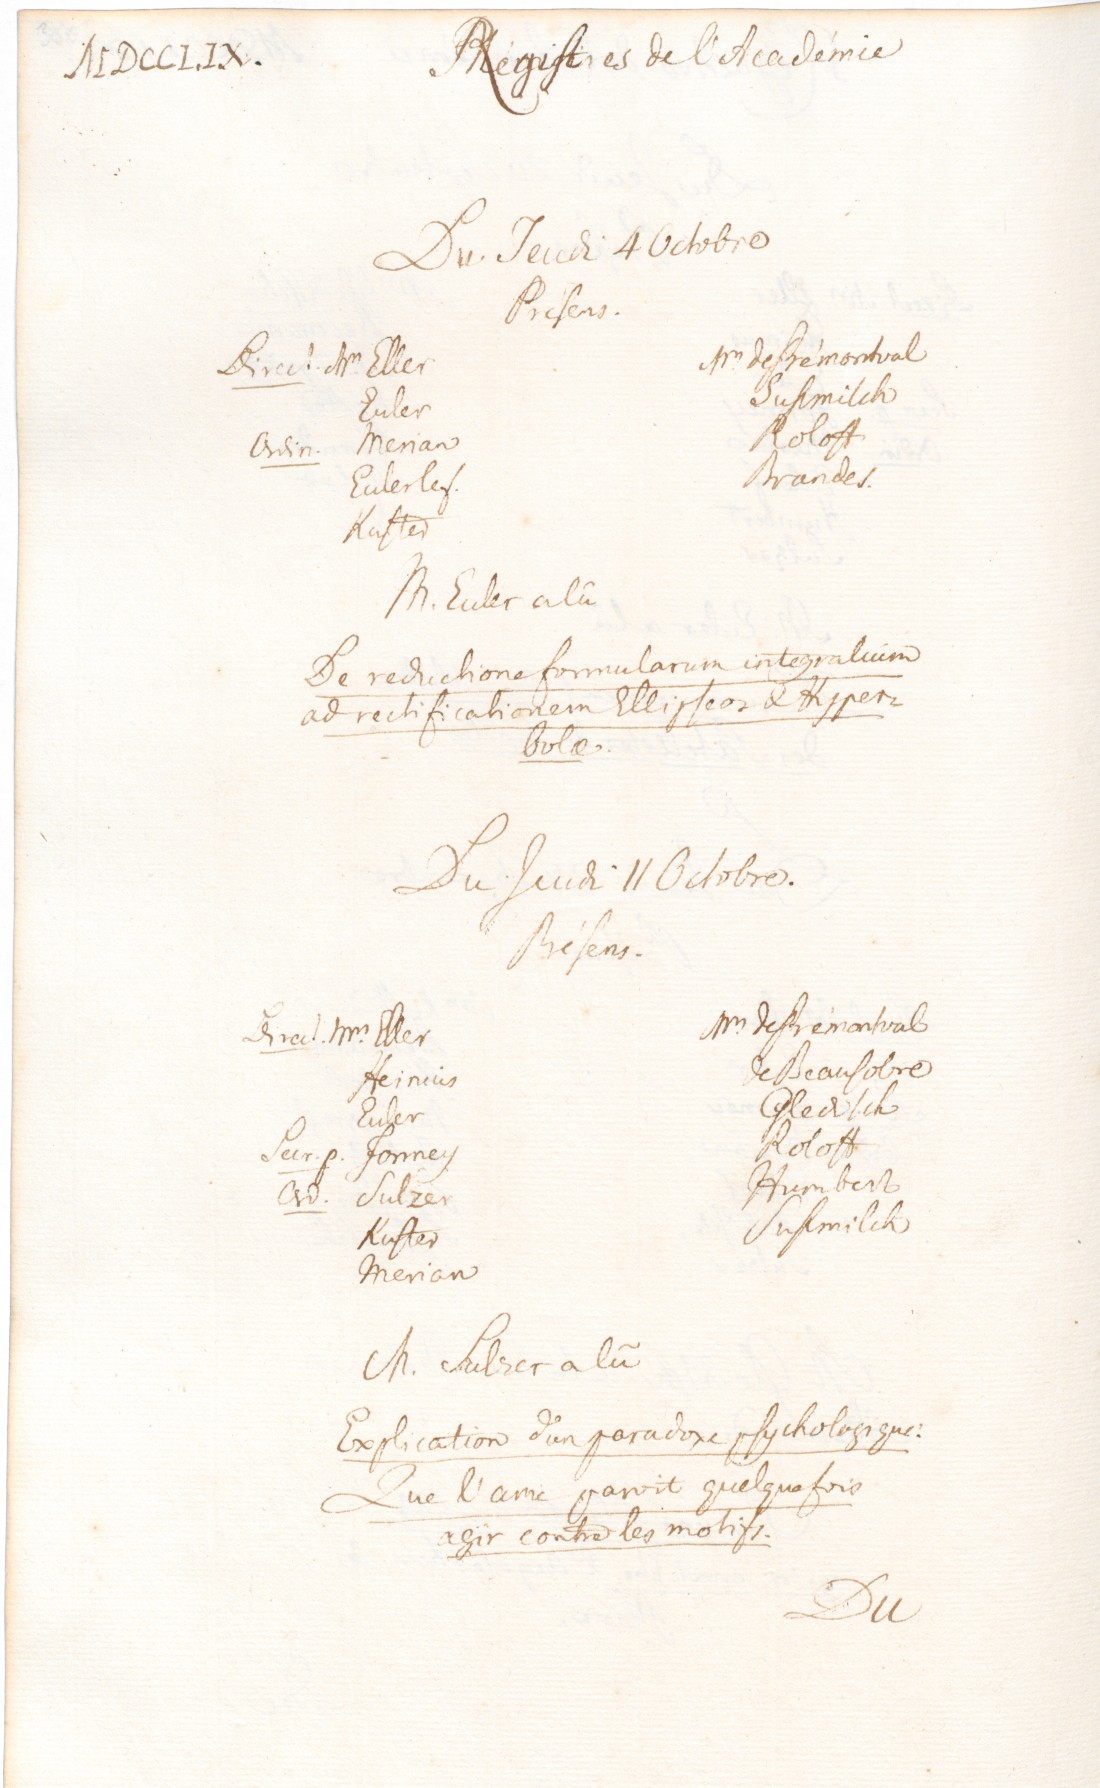 MDCCLIX.
Régistres de l'Académie
Du Jeudi 4 Octobre
Présens.
Direct. Mrs Eller
Euler
Ordin. Merian
Euler le f.
Kuster
Mrs de Prémontval
Susmilch
Roloff
Brandes.
M. Euler a lû
De reductione formularum integralium
ad rectificationem Ellipseos & Hyper=
bolæ.
Du Jeudi 11 Octobre.
Présens.
Direct. Mrs Eller
Heinius
Euler
Secr. p. Formey
Ord. Sulzer
Kuster
Merian
Mrs de Prémontval
de Beausobre
Gleditsch
Roloff
Humbert
Susmilch
M. Sulzer a lû
Explication d'un paradoxe psychologique:
Que l'ame paroit quelquefois
agir contre les motifs.
Du